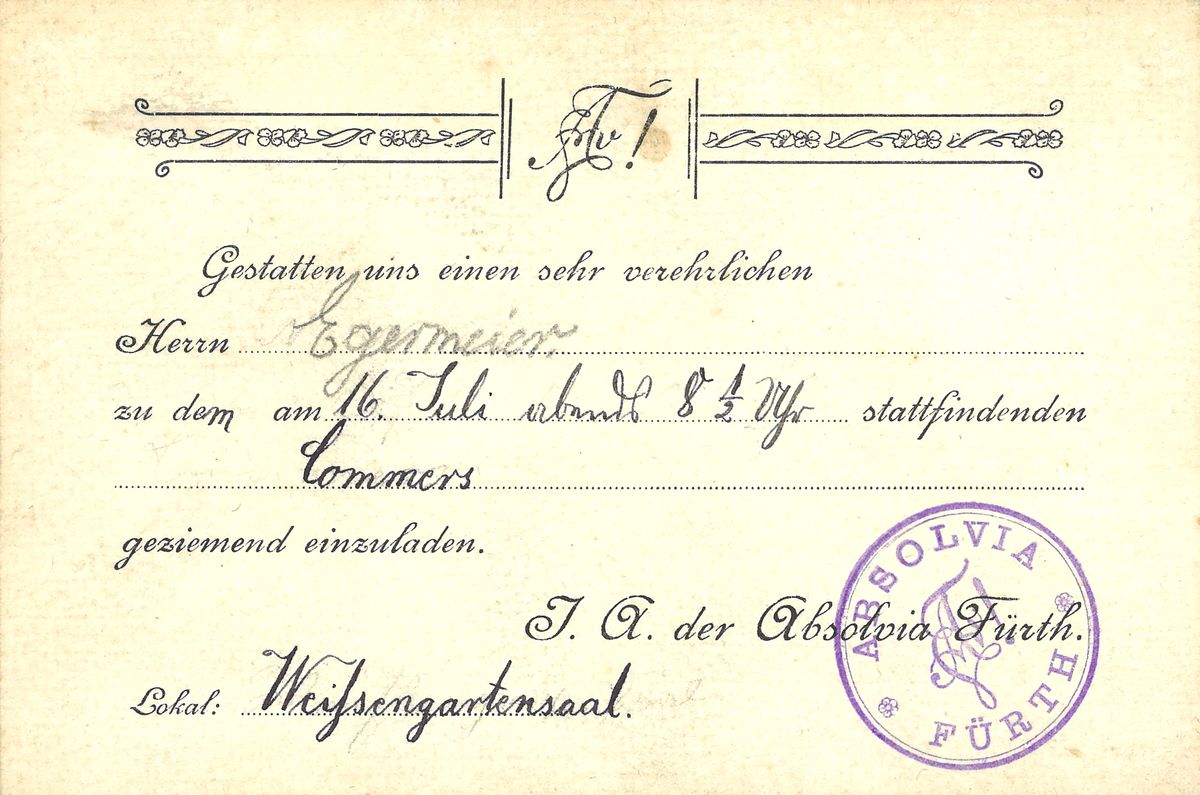 Gestatten uns einen sehr verehrlichen
Herrn Egermeier.
zu dem am 16. Juli abends 8 1/2 Uhr stattfindenden
Commers
geziemend einzuladen.
I. A. der Absolvia Fürth.
Lokal: Weissengartensaal.
ABSOLVIA
FÜRTH